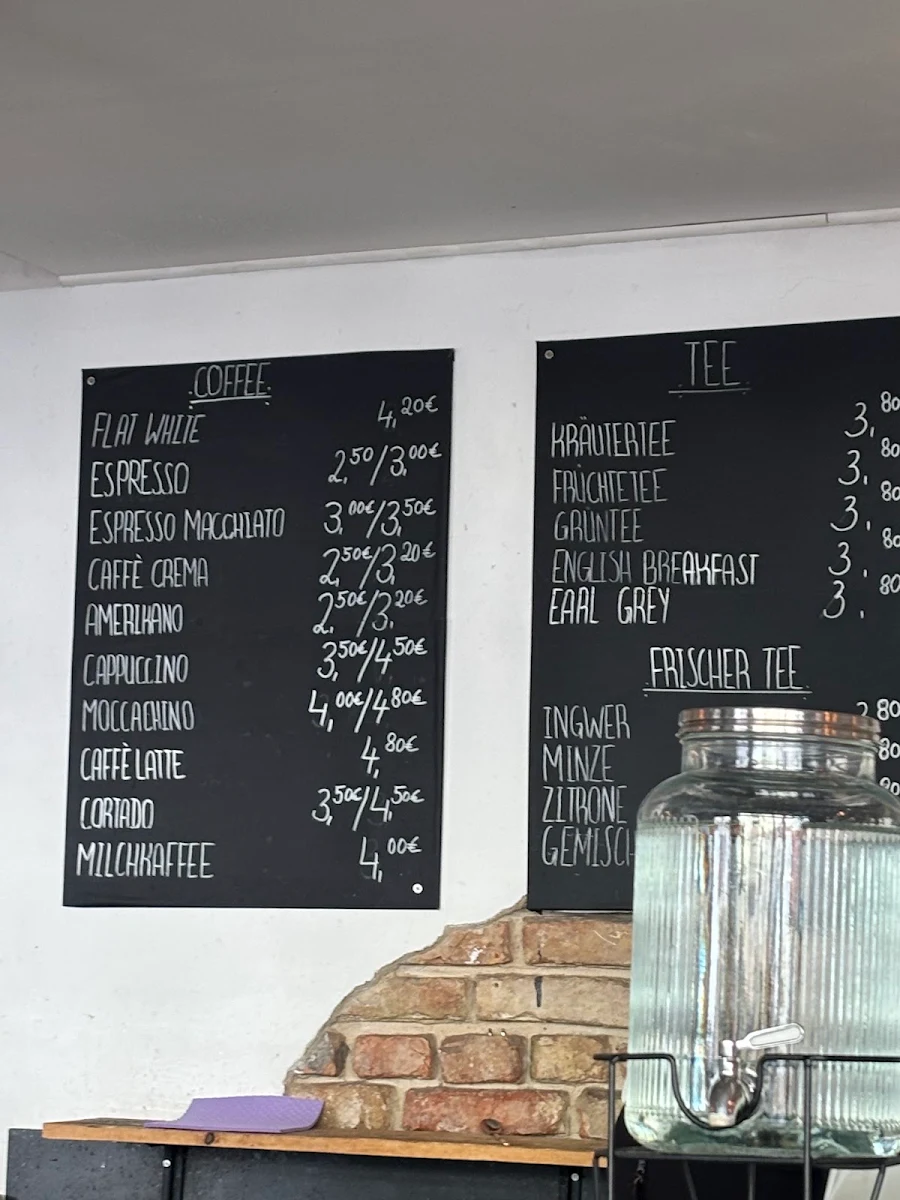 COFFEE
FLAT WHITE 4,20€
ESPRESSO 2,50/3,00€
ESPRESSO MACCHIATO 3,00€/3,50€
CAFFÈ CREMA 2,50€/3,20€
AMERIKANO 2,50€/3,20€
CAPPUCCINO 3,50€/4,50€
MOCCACHINO 4,00€/4,80€
CAFFÈ LATTE 4,80€
CORTADO 3,50€/4,50€
MILCHKAFFEE 4,00€
TEE
KRÄUTERTEE 3,80
FRÜCHTETEE 3,80
GRÜNTEE 3,80
ENGLISH BREAKFAST 3,80
EARL GREY 3,80
FRISCHER TEE
INGWER 80
MINZE 80
ZITRONE
GEMISCH